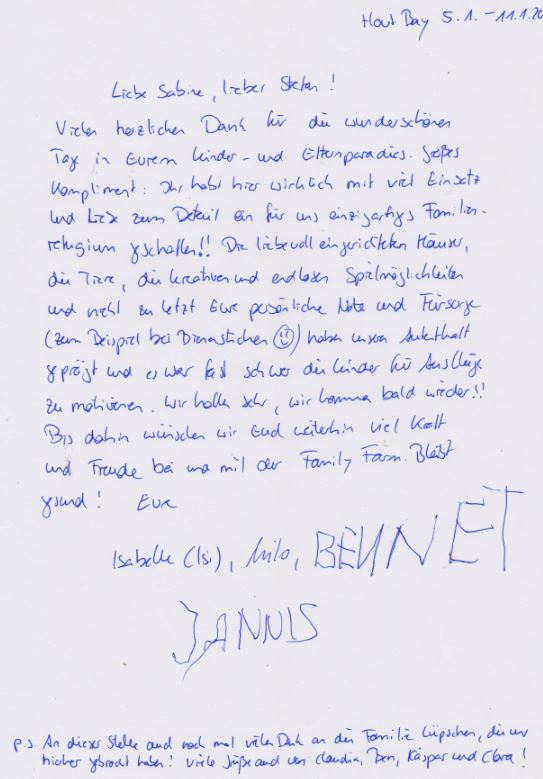 Hout Bay 5.1. - 11.1.20
Liebe Sabine, lieber Stefan!
Vielen herzlichen Dank für die wunderschönen
Tage in Eurem Kinder- und Elternparadies. Großes
Kompliment: Ihr habt hier wirklich mit viel Einsatz
und Liebe zum Detail ein für uns einzigartiges Familien-
refugium geschaffen!! Die liebevoll eingerichteten Häuser,
die Tiere, die kreativen und endlosen Spielmöglichkeiten
und nicht zu letzt Eure persönliche Note und Fürsorge
(zum Beispiel bei Bienenstichen ☺) haben unseren Aufenthalt
geprägt und es war fast schwer die Kinder für Ausflüge
zu motivieren. Wir hoffen sehr, wir kommen bald wieder!!
Bis dahin wünschen wir Euch weiterhin viel Kraft
und Freude bei und mit der Family Farm. Bleibt
gesund! Eure
Isabelle (Isi), Milo, BENNET
JANNIS
p.s. An dieser Stelle auch noch mal vielen Dank an die Familie Lüpschen, die uns
hierher gebracht haben! Viele Grüße auch von Claudia, Ben, Kaspar und Clara!